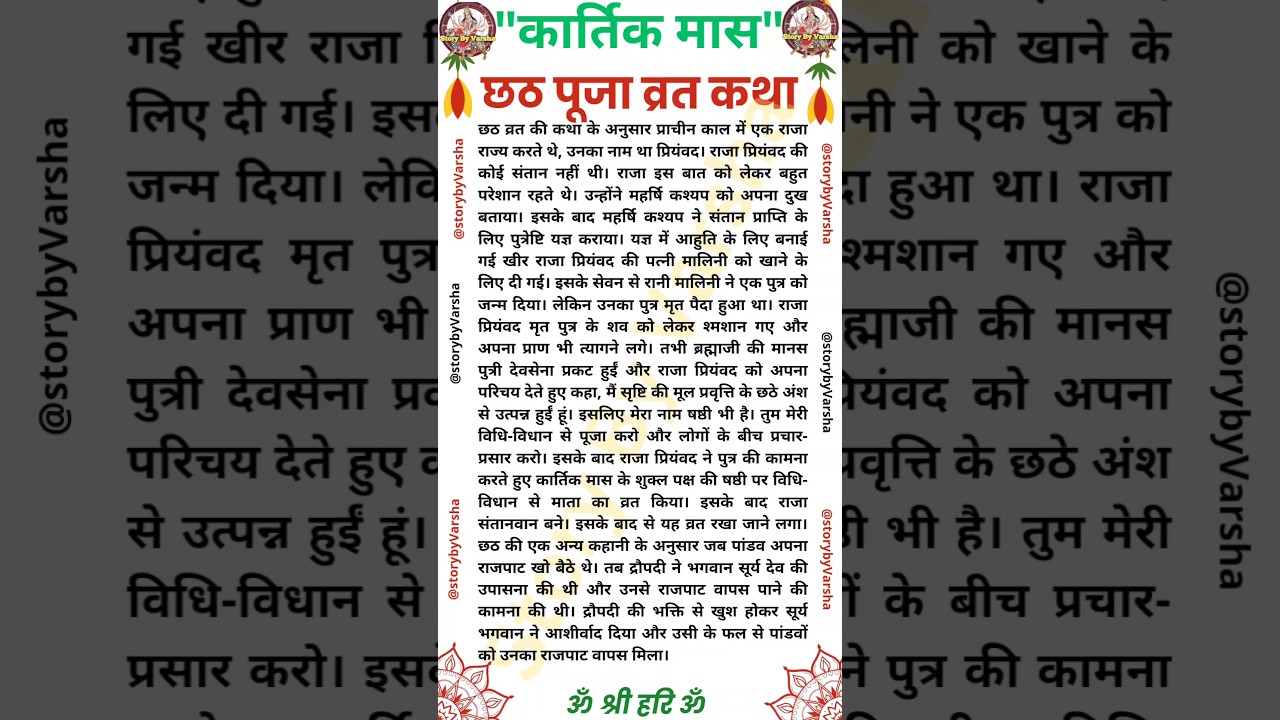 "कार्तिक मास"
छठ पूजा व्रत कथा
छठ व्रत की कथा के अनुसार प्राचीन काल में एक राजा
राज्य करते थे, उनका नाम था प्रियंवद। राजा प्रियंवद की
कोई संतान नहीं थी। राजा इस बात को लेकर बहुत
परेशान रहते थे। उन्होंने महर्षि कश्यप को अपना दुख
बताया। इसके बाद महर्षि कश्यप ने संतान प्राप्ति के
लिए पुत्रेष्टि यज्ञ कराया। यज्ञ में आहुति के लिए बनाई
गई खीर राजा प्रियंवद की पत्नी मालिनी को खाने के
लिए दी गई। इसके सेवन से रानी मालिनी ने एक पुत्र को
जन्म दिया। लेकिन उनका पुत्र मृत पैदा हुआ था। राजा
प्रियंवद मृत पुत्र के शव को लेकर श्मशान गए और
अपना प्राण भी त्यागने लगे। तभी ब्रह्माजी की मानस
पुत्री देवसेना प्रकट हुईं और राजा प्रियंवद को अपना
परिचय देते हुए कहा, मैं सृष्टि की मूल प्रवृत्ति के छठे अंश
से उत्पन्न हुईं हूं। इसलिए मेरा नाम षष्ठी भी है। तुम मेरी
विधि-विधान से पूजा करो और लोगों के बीच प्रचार-
प्रसार करो। इसके बाद राजा प्रियंवद ने पुत्र की कामना
करते हुए कार्तिक मास के शुक्ल पक्ष की षष्ठी पर विधि-
विधान से माता का व्रत किया। इसके बाद राजा
संतानवान बने। इसके बाद से यह व्रत रखा जाने लगा।
छठ की एक अन्य कहानी के अनुसार जब पांडव अपना
राजपाट खो बैठे थे। तब द्रौपदी ने भगवान सूर्य देव की
उपासना की थी और उनसे राजपाट वापस पाने की
कामना की थी। द्रौपदी की भक्ति से खुश होकर सूर्य
भगवान ने आशीर्वाद दिया और उसी के फल से पांडवों
को उनका राजपाट वापस मिला।
ॐ श्री हरि ॐ
Story By Varsha
Story By Varsha
Story By Varsha
@storybyVarsha
@storybyVarsha
@storybyVarsha
@storybyVarsha
@storybyVarsha
@storybyVarsha
@storybyVarsha
@storybyVarsha